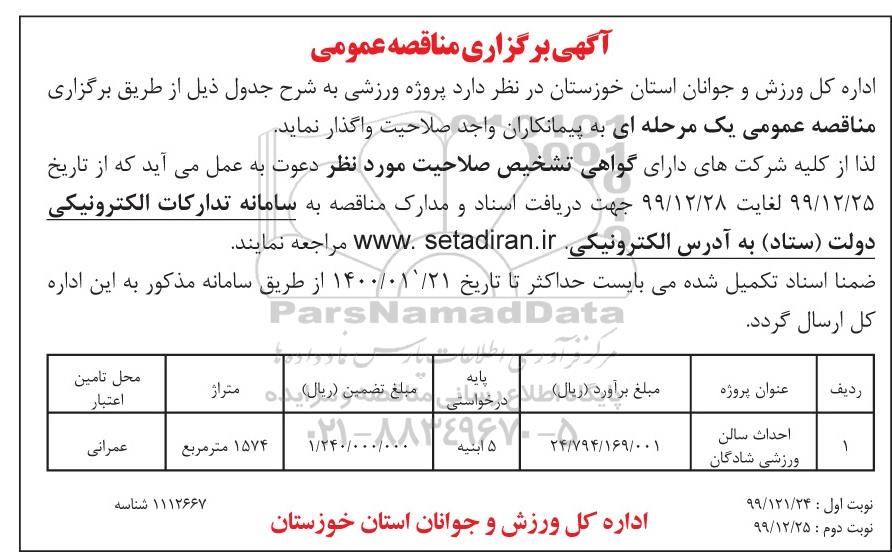 آگهی برگزاری مناقصه عمومی
اداره کل ورزش و جوانان استان خوزستان در نظر دارد پروژه ورزشی به شرح جدول ذیل از طریق برگزاری
مناقصه عمومی یک مرحله ای به پیمانکاران واجد صلاحیت واگذار نماید.
لذا از کلیه شرکت های دارای گواهی تشخیص صلاحیت مورد نظر دعوت به عمل می آید که از تاریخ
۹۹/۱۲/۲۵ لغایت ۹۹/۱۲/۲۸ جهت دریافت اسناد و مدارک مناقصه به سامانه تدارکات الکترونیکی
دولت (ستاد) به آدرس الکترونیکی. www. setadiran.ir مراجعه نمایند.
ضمنا اسناد تکمیل شده می بایست حداکثر تا تاریخ ۱۴۰۰/۰۱/۲۱ از طریق سامانه مذکور به این اداره
کل ارسال گردد.
ParsNamadData
مرکز فرآوری اطلاعات پارس نماد داده ها
ردیف عنوان پروژه مبلغ برآورد (ریال) پایه درخواستی مبلغ تضمین (ریال) متراژ محل تامین اعتبار
۱ احداث سالن ورزشی شادگان ۲۴/۷۹۴/۱۶۹/۰۰۱ ۵ ابنیه ۱/۲۴۰/۰۰۰/۰۰۰ ۱۵۷۴ مترمربع عمرانی
۰۲۱-۸۸۳۴۹۶۷۰-۵
نوبت اول : ۹۹/۱۲۱/۲۴
نوبت دوم : ۹۹/۱۲/۲۵
اداره کل ورزش و جوانان استان خوزستان
۱۱۱۲۶۶۷ شناسه